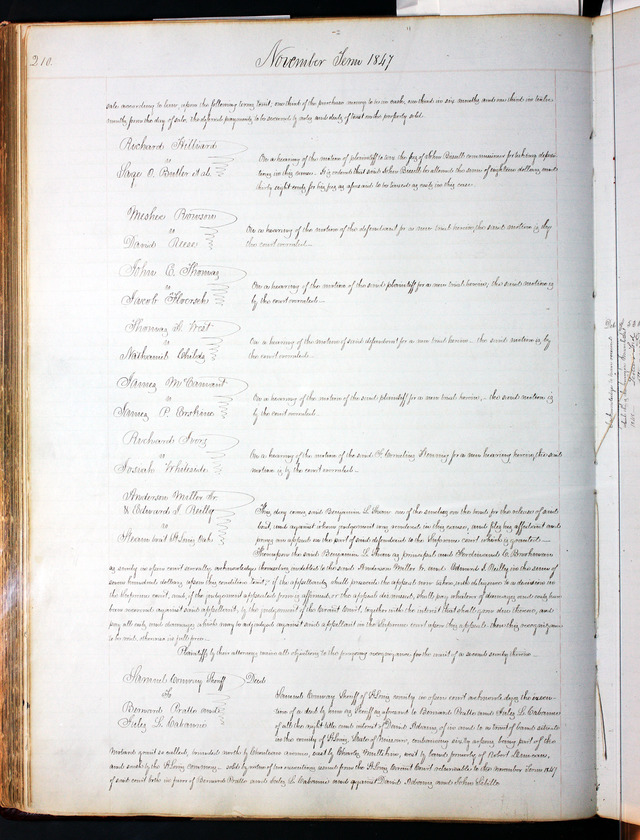 210.
November Term 1847
sale according to law, upon the following terms, towit, one third of the purchase money to be in cash, one third in six months, and one third in twelve
months from the day of sale, the deferred payments to be secured by notes and deeds of trust on the property sold.
Richard Hilliard
vs
Sage O. Butler et al.
On a hearing of the motion of plaintiff to tax the fee of John Bissell commissioner for taking deposi-
tions in this cause. It is ordered that said John Bissell be allowed the sum of eighteen dollars and
thirty eight cents for his fee as aforesaid to be taxed as costs in this case.
Meshec Bronson
vs
David Reese
On a hearing of the motion of the defendant for a new trial herein, the said motion is by
the court overruled.
John C. Thomas
vs
Jacob Hoorsch
On a hearing of the motion of the said plaintiff for a new trial herein, the said motion is
by the court overruled.
Thomas H. West
vs
Nathaniel Childs
On a hearing of the motion of said defendant for a new trial herein, the said motion is by
the court overruled.
James McCamant
vs
James P. Erskine
On a hearing of the motion of the said plaintiff for a new trial herein, the said motion is
by the court overruled.
Richard Ivers
vs
Josiah Whiteside
On a hearing of the motion of the said Cornelius Fleming for a new hearing herein, the said
motion is by the court overruled.
Anderson Miller Sr.
& Edward J. Reilly
vs
Steam boat St Louis Oak
This day comes said Benjamin L. one of the sureties on the bond for the release of said
boat, and against whom judgement was rendered in this cause, and files his affidavit and
prays an appeal on the part of said defendant to the Supreme court which is granted.
Thereupon the said Benjamin L. as principal and Ferdinand C.
as surety in open court severally acknowledge themselves indebted to the said Anderson Miller Sr. and Edward J. Reilly in the sum of
seven hundred dollars, upon this condition that, if the appellants shall prosecute the appeal now taken, with diligence to a decision in
the Supreme court, and if the judgement appealed from is affirmed or the appeal dismissed, shall pay whatever of damages and costs have
been recovered against said appellant, by the judgement of the Circuit court, together with the interest that shall grow due thereon, and
pay all costs and damages which may be adjudged against said appellant in the Supreme court upon this appeal, then this recognizance
to be void, otherwise in full force.
Plaintiffs by their attorney waive all objections to the foregoing recognizance for the want of a second surety therein.
Samuel Conway Sheriff
To
Bernard Pratte and
Julez L. Cabanne
Deed
Samuel Conway Sheriff of St Louis county in open court acknowledges the execu-
tion of a deed by him as Sheriff as aforesaid to Bernard Pratte and Julez L. Cabanne
of all the right title and interest of David Adams, of in and to a lot of land situate
in the county of St Louis, State of Missouri, containing sixty arpens, being part of the
so called, bounded north by avenue, east by Charles south by land of Robert
and south by the St Louis common. sold by virtue of two executions issued from the St Louis Circuit Court returnable to the November Term 1847
of said court both in favor of Bernard Pratte and Julez L. Cabanne and against David Adams and John Sibille